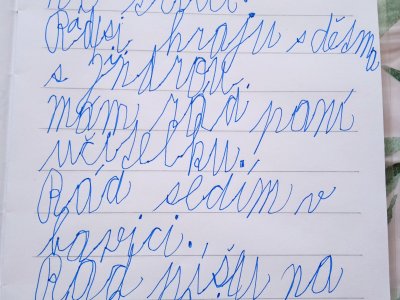 Rád si hraju s děsma
s
mám rád paní
učitelku.
Rád sedím v
lavici.
Rád píšu na